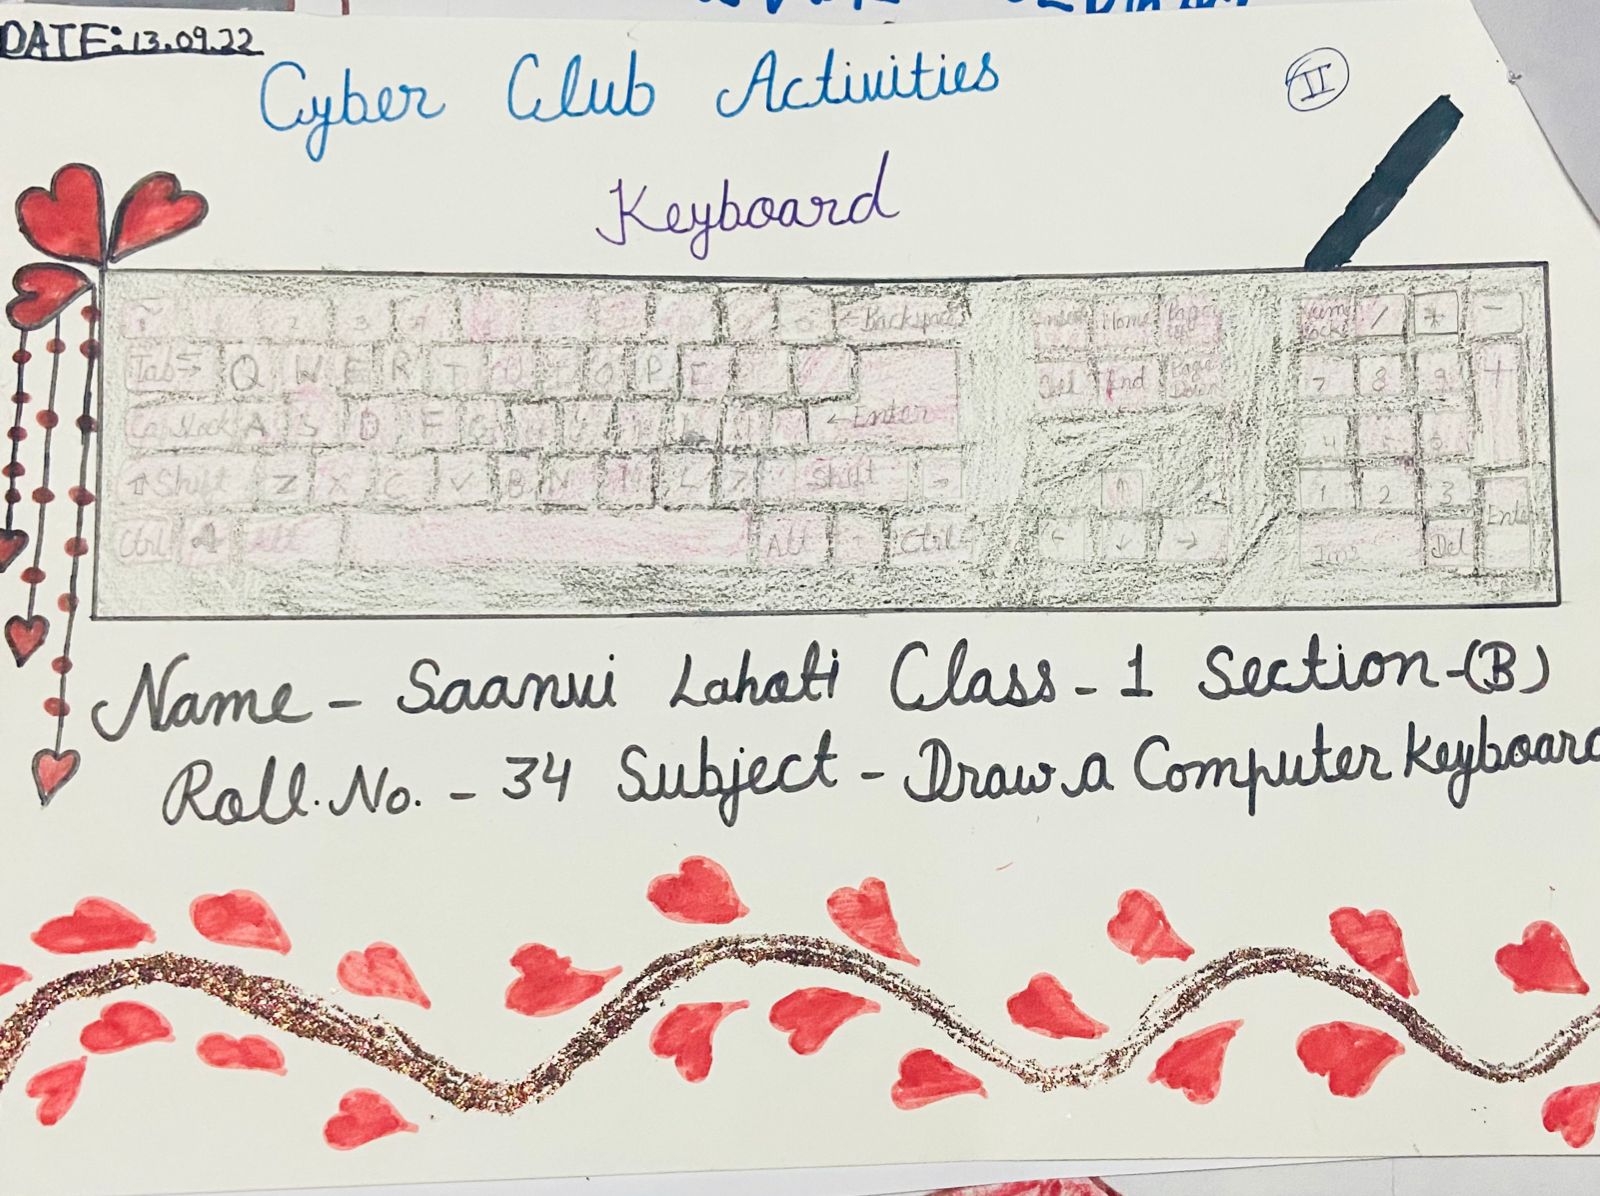 DATE: 13.09.22
Cyber Club Activities
II
Keyboard
1 2 3 4 ← Backspace Insert Home Page Up Num Lock / * -
Tab Q W E R T O P [ Del End Page Down 7 8 9 +
Caps Lock A S D F G ← Enter 4 5 6
↑ Shift Z X C V B N M Shift ↑ 1 2 3 Enter
Ctrl Alt Alt Ctrl ← ↓ → Ins Del
Name - Saanvi Lahoti Class - 1 Section - (B)
Roll. No. - 34 Subject - Draw a Computer Keyboard